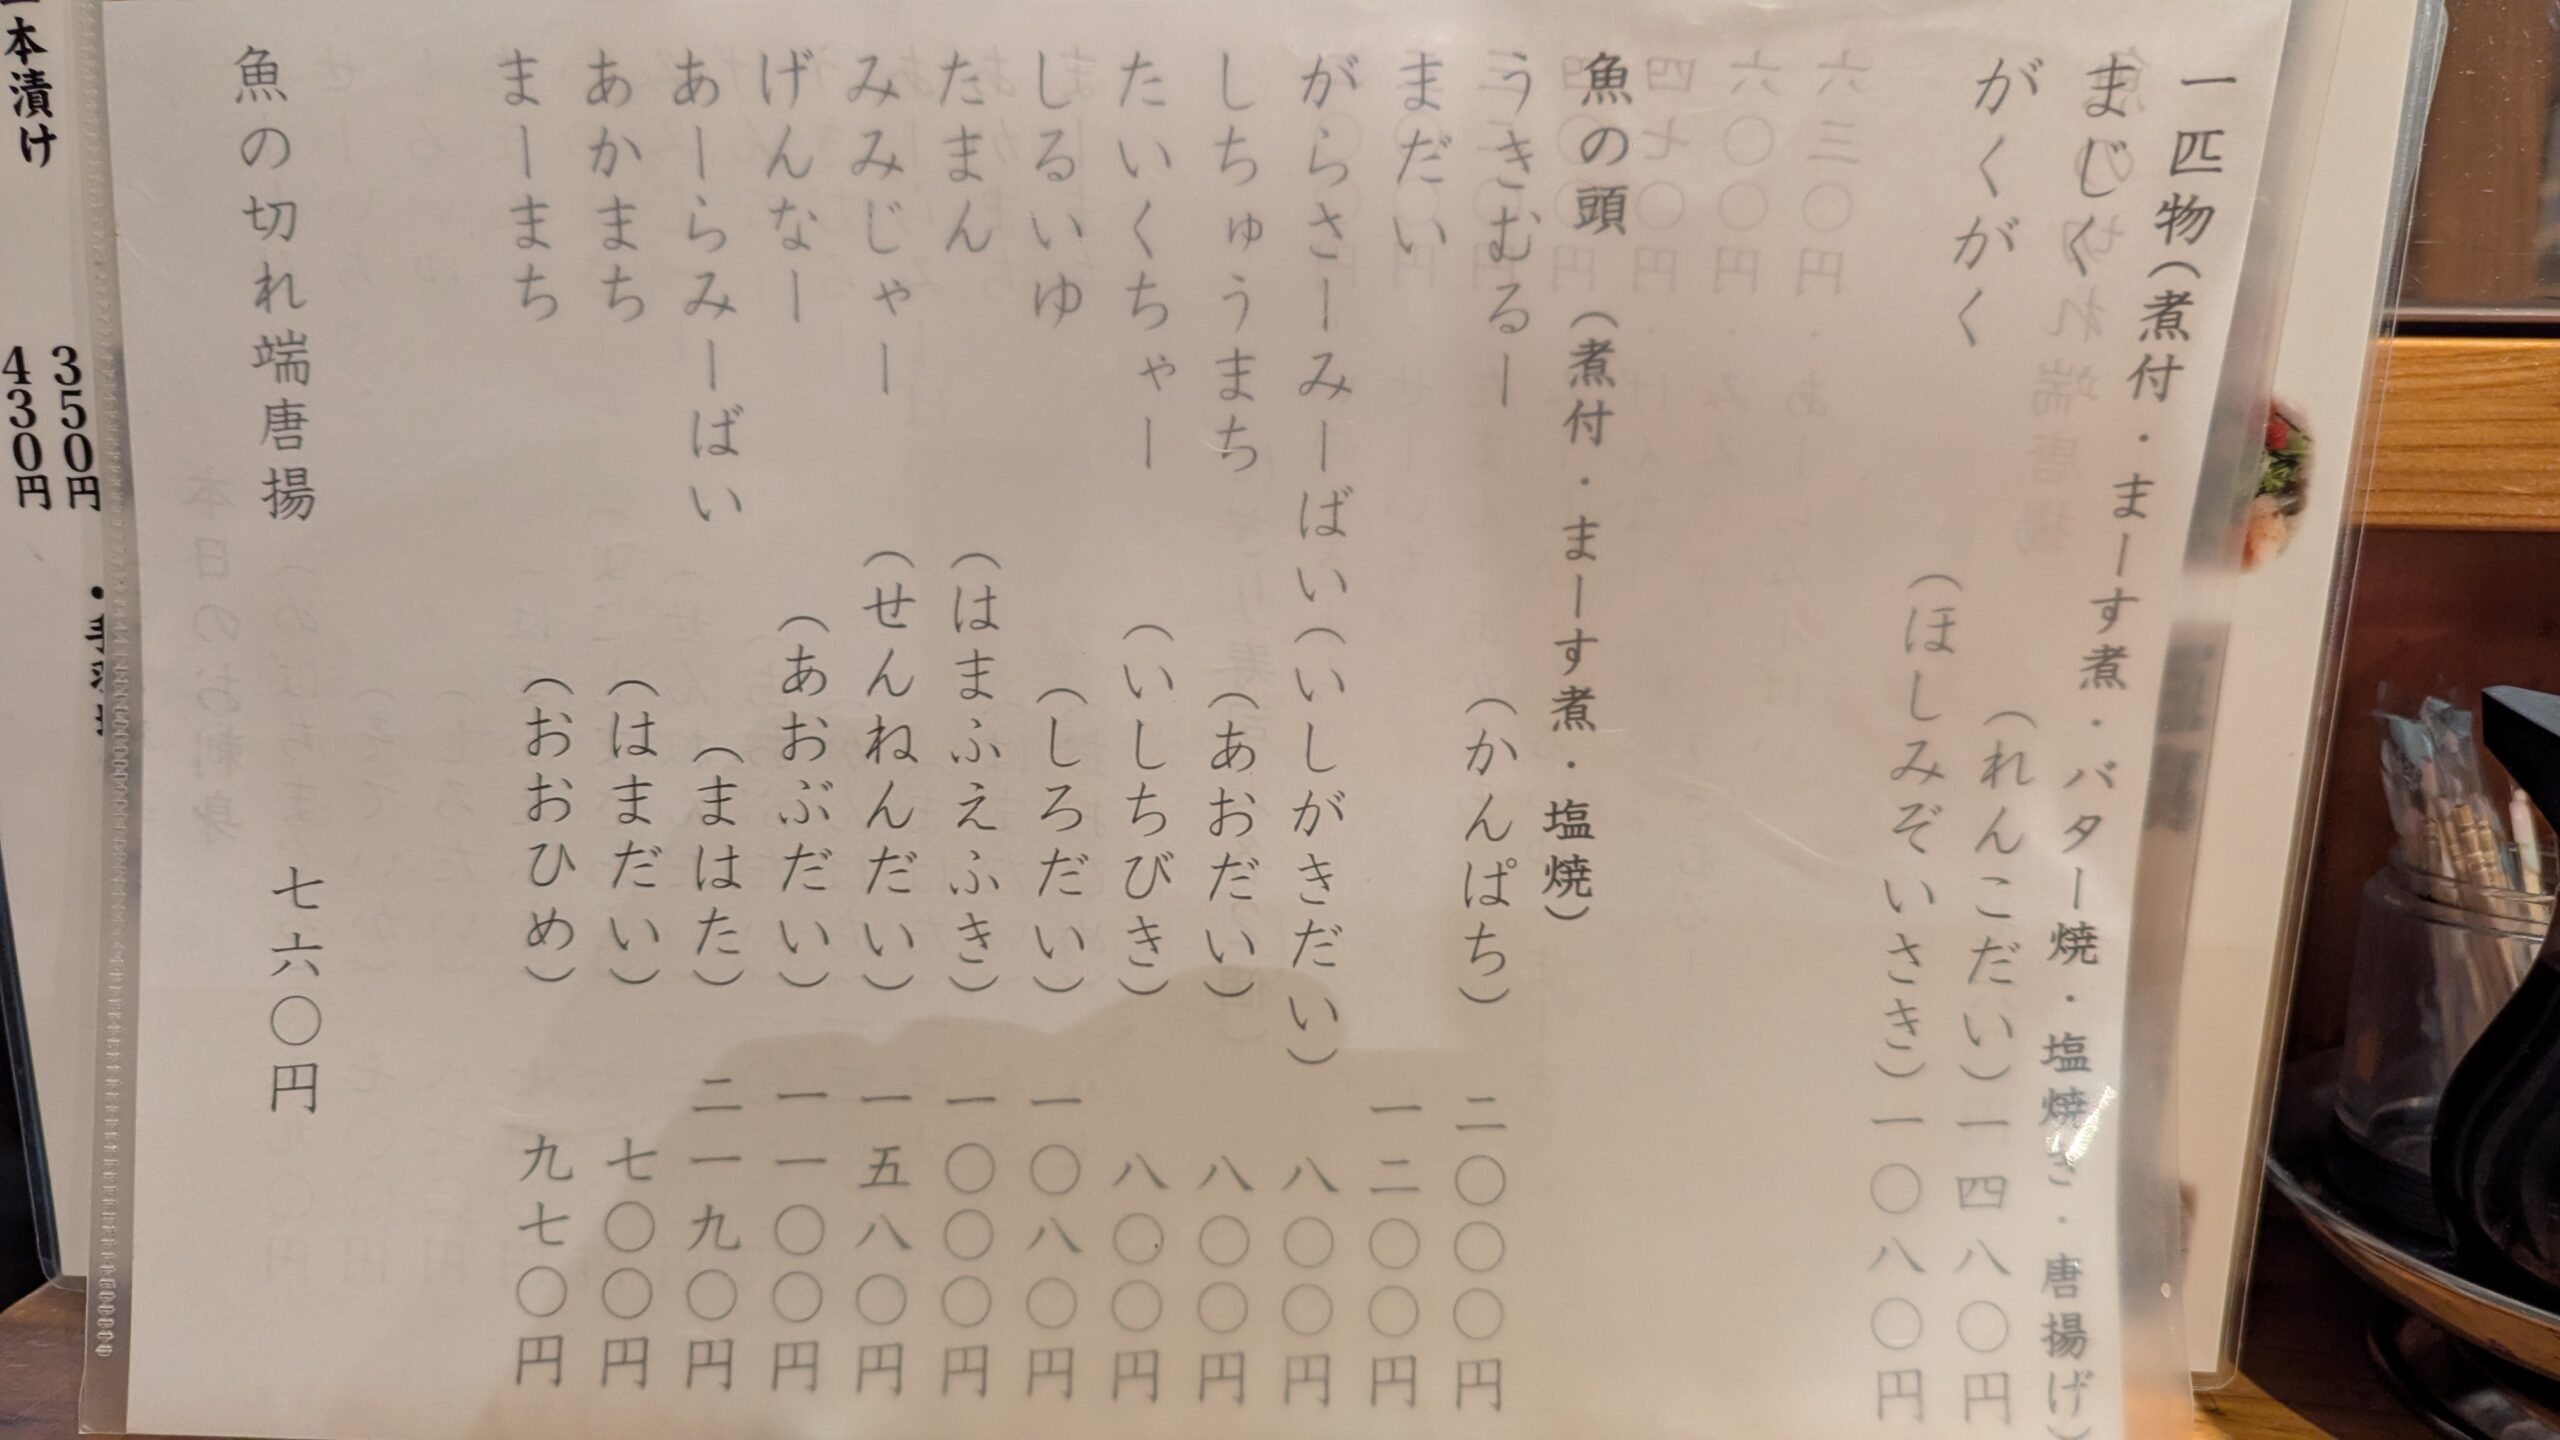 一匹物(煮付・まーす煮・バター焼・塩焼き・唐揚げ)
まじく (れんこだい)一四八〇円
がくがく (ほしみぞいさき)一〇八〇円
魚の頭 (煮付・まーす煮・塩焼)
うきむるー (かんぱち) 二〇〇〇円
まだい 一二〇〇円
がらさーみーばい(いしがきだい) 八〇〇円
しちゅうまち (あおだい) 八〇〇円
たいくちゃー (いしちびき) 八〇〇円
しるいゆ (しろだい) 一〇八〇円
たまん (はまふえふき) 一〇〇〇円
みみじゃー (せんねんだい) 一五八〇円
げんなー (あおぶだい) 一一〇〇円
あーらみーばい (まはた) 二一九〇円
あかまち (はまだい) 七〇〇円
まーまち (おおひめ) 九七〇円
魚の切れ端唐揚 七六〇円
本漬け
350円
430円